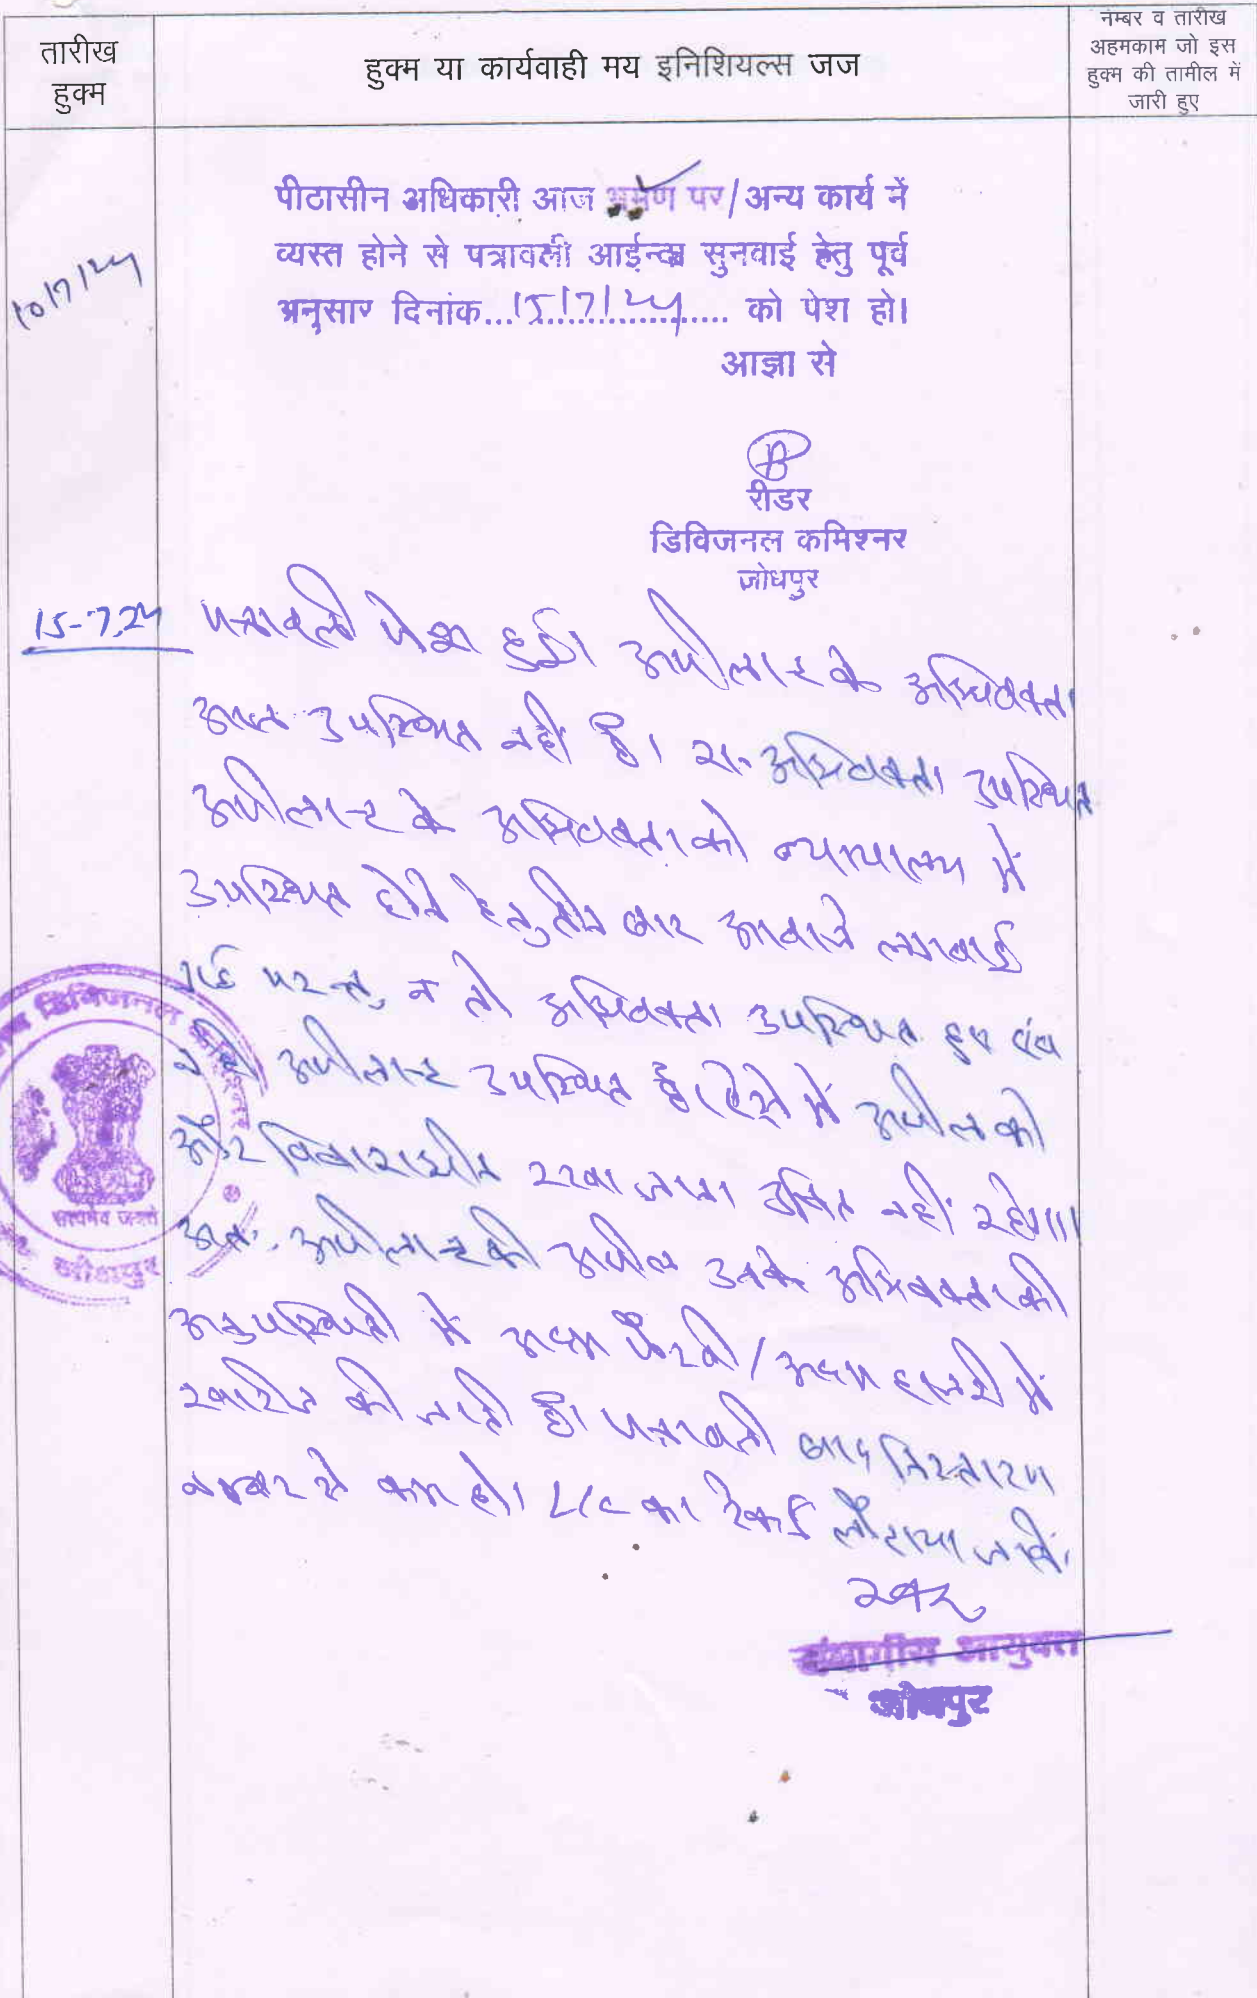 तारीख
हुक्म
हुक्म या कार्यवाही मय इनिशियल्स जज
नम्बर व तारीख
अहमकाम जो इस
हुक्म की तामील में
जारी हुए
10/7/24
पीठासीन अधिकारी आज भ्रमण पर/अन्य कार्य में
व्यस्त होने से पत्रावली आईन्दा सुनवाई हेतु पूर्व
अनुसार दिनांक...15/7/24... को पेश हो।
आज्ञा से
रीडर
डिविजनल कमिश्नर
जोधपुर
15-7-24
पत्रावली पेश हुई। अपीलान्ट के अधिवक्ता
आज उपस्थित नहीं है। रा. अधिवक्ता उपस्थित
अपीलान्ट के अधिवक्ता को न्यायालय में
उपस्थित होने हेतु तीन बार आवाजे लगवाई
गई परन्तु न तो अधिवक्ता उपस्थित हुए एवं
न ही अपीलान्ट उपस्थित है। ऐसे में अपील को
और विचाराधीन रखा जाना उचित नहीं रहेगा।
अतः अपीलान्ट की अपील उनके अधिवक्ता की
अनुपस्थिती में अदम पैरवी/अदम हाजरी में
खारीज की जाती है। पत्रावली बाद निस्तारण
नम्बर से कम हो। L/C का रेकर्ड लौटाया जावें।
संभागीय आयुक्त
जोधपुर
डिविजनल कमिश्नर
सत्यमेव जयते
जोधपुर